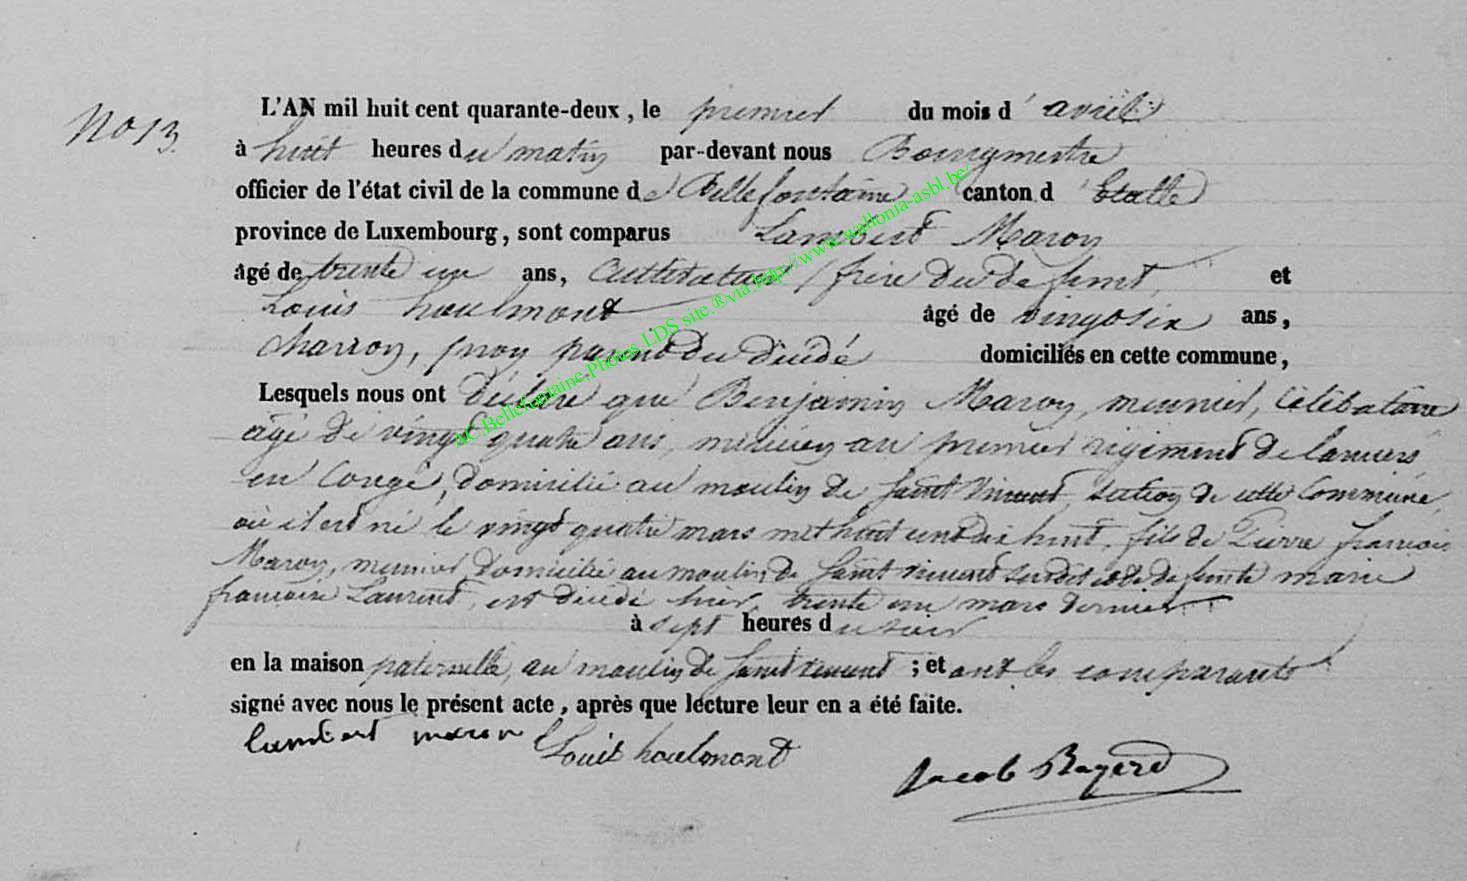 No 13.
L'AN mil huit cent quarante-deux, le premier du mois d' avril
à huit heures du matin par-devant nous Bourgmestre
officier de l'état civil de la commune de Bellefontaine canton d' Etalle
province de Luxembourg, sont comparus Lambert Maron
âgé de trente un ans, Cultivateur, frère du défunt, et
Louis houlmont âgé de vingt six ans,
charron, non parent du décédé domiciliés en cette commune,
Lesquels nous ont déclaré que Benjamin Maron, meunier, Célibataire
âgé de vingt quatre ans, milicien au premier régiment de lanciers
en Congé, domicilié au moulin de Saint Vincent, section de cette Commune,
où il est né le vingt quatre mars mil huit cent dix huit, fils de Pierre françois
Maron, meunier domicilié au moulin de Saint Vincent susdit et de défunte marie
françoise Laurent, est décédé hier, trente un mars dernier
à sept heures du soir
en la maison paternelle, au moulin de Saint vincent ; et ont les comparants
signé avec nous le présent acte, après que lecture leur en a été faite.
lambert maron Louis houlmont
Jacob Bayero
AC.Bellefontaine.Photos LDS site.®via http://www.wallonia-asbl.be/